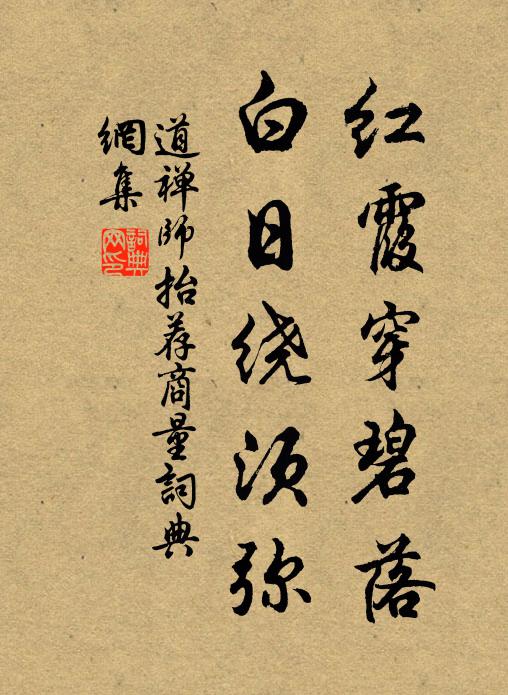 红霞穿碧落
白日绕须弥
道禅師抬荐商量詞典
網集
詞典
网印